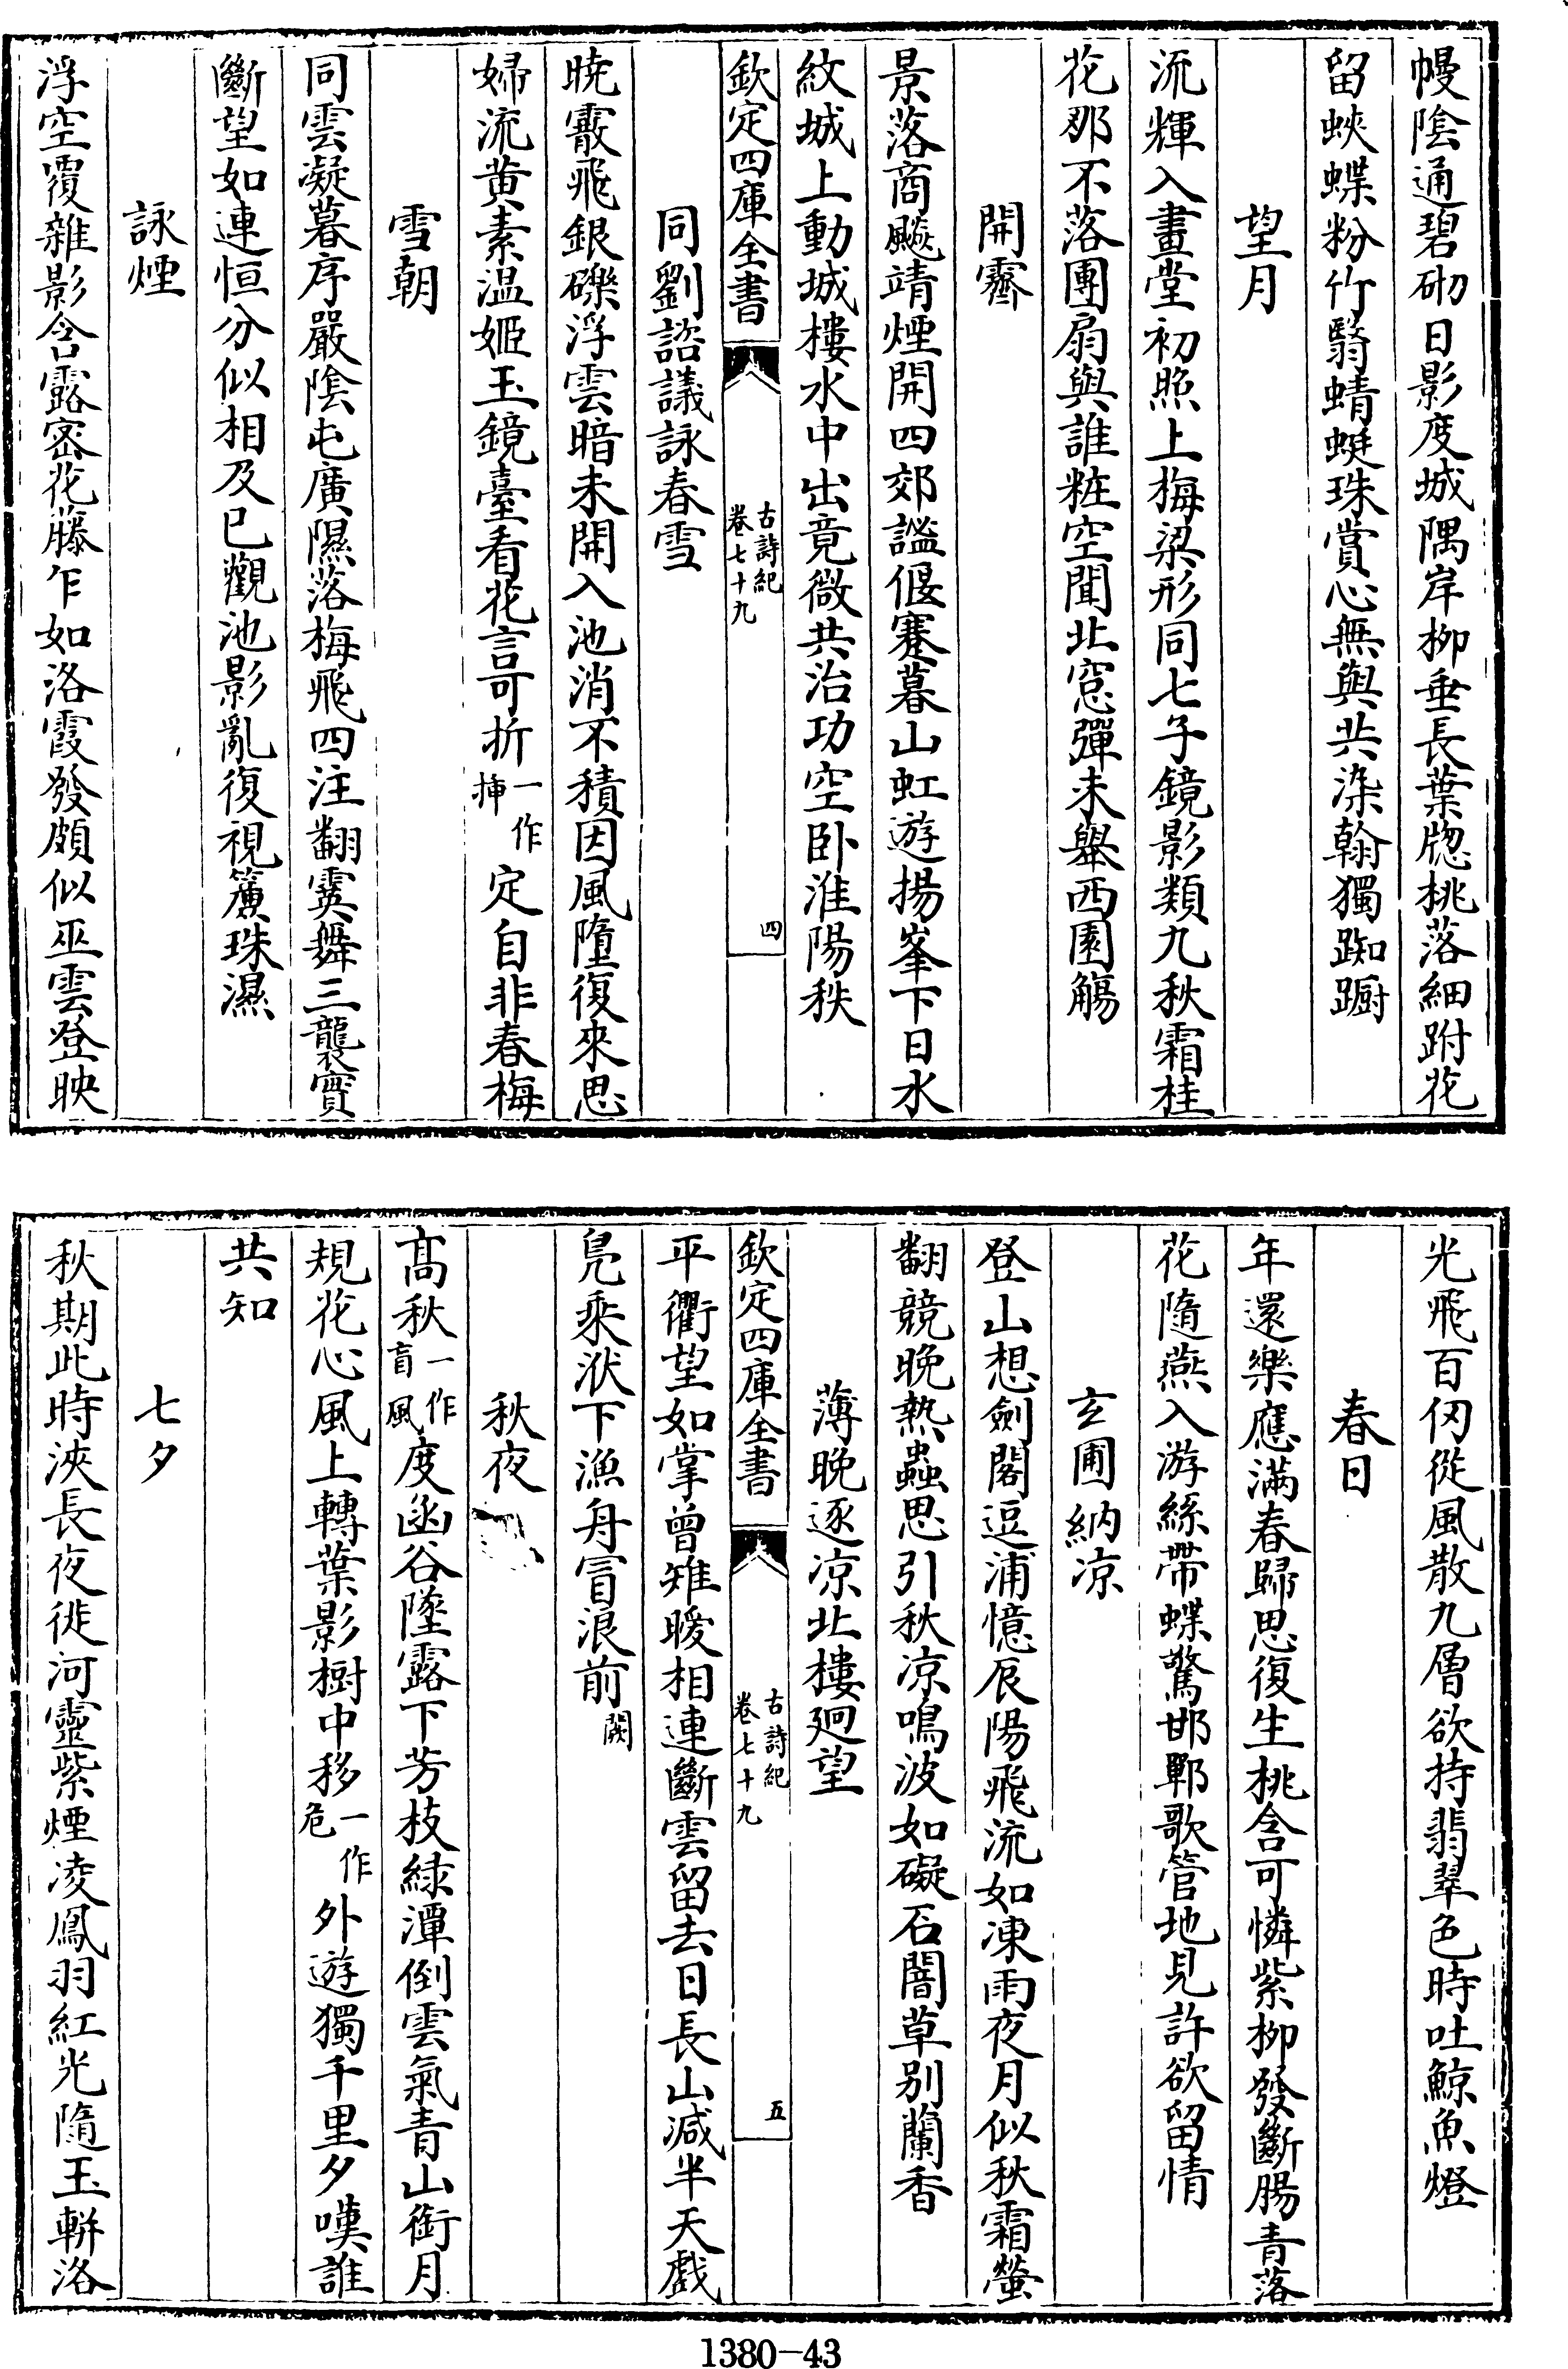 幔陰通碧砌日影度城隅岸柳垂長葉牕桃落細跗花
留蛺蝶粉竹翳蜻蜓珠賞心無與共染翰獨踟蹰
望月
流輝入畫堂初照上梅梁形同七子鏡影類九秋霜桂
花那不落團扇與誰粧空聞北窓彈未舉西園觴
開霽
景落商飈靖煙開四郊謐偃蹇暮山虹遊揚峯下日水
紋城上動城樓水中出竟微共治功空卧淮陽秩
欽定四庫全書
古詩紀
卷七十九
四
同劉諮議詠春雪
晓霰飛銀礫浮雲暗未開入池消不積因風墮復來思
婦流黄素温姬玉鏡臺看花言可折一作揷定自非春梅
雪朝
同雲凝暮序嚴陰屯廣隰落梅飛四注翻霙舞三襲實
斷望如連恒分似相及已觀池影亂復視簾珠濕
詠煙
浮空覆雜影含露密花藤乍如洛霞發頗似巫雲登映
光飛百仞從風散九層欲持翡翠色時吐鯨魚燈
春日
年還樂應滿春歸思復生桃含可憐紫柳發斷腸青落
花隨燕入游絲帶蝶驚邯鄲歌管地見許欲留情
玄圃納凉
登山想劍閣逗浦憶辰陽飛流如凍雨夜月似秋霜螢
翻競晚熱蟲思引秋凉鳴波如礙石闇草别蘭香
薄晚逐凉北樓廻望
欽定四庫全書
古詩紀
卷七十九
五
平衢望如掌曾雉曖相連斷雲留去日長山減半天戲
鳧乘洑下漁舟冒浪前闕
秋夜
髙秋一作盲風度函谷墜露下芳枝緑潭倒雲氣青山銜月
規花心風上轉葉影樹中移一作危外遊獨千里夕嘆誰
共知
七夕
秋期此時浹長夜徙河靈紫煙凌鳳羽紅光隨玉軿洛
1380-43